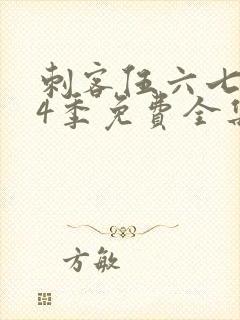 刺客伍六七
4季免费全集
方敏